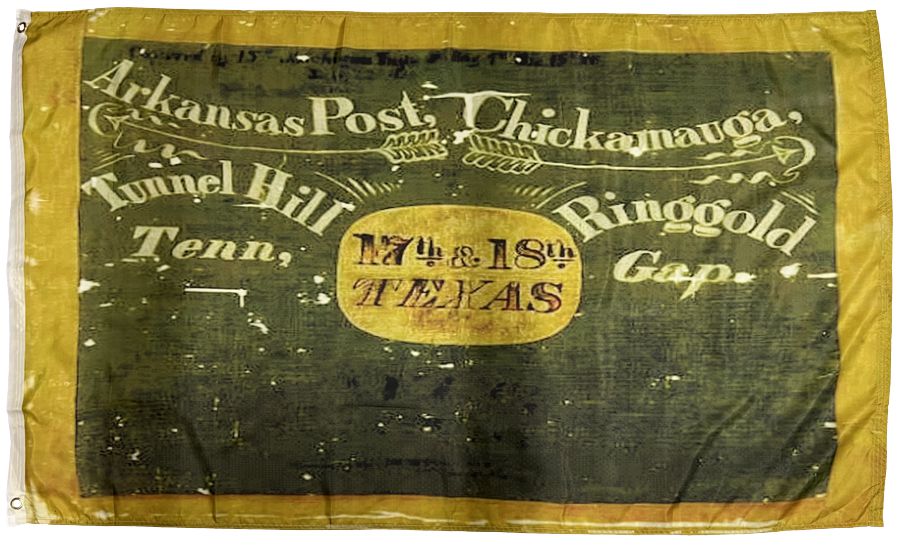 by 15
Arkansas Post, Chickamauga,
Tunnel Hill Ringgold
Tenn, Gap.
17th & 18th
TEXAS